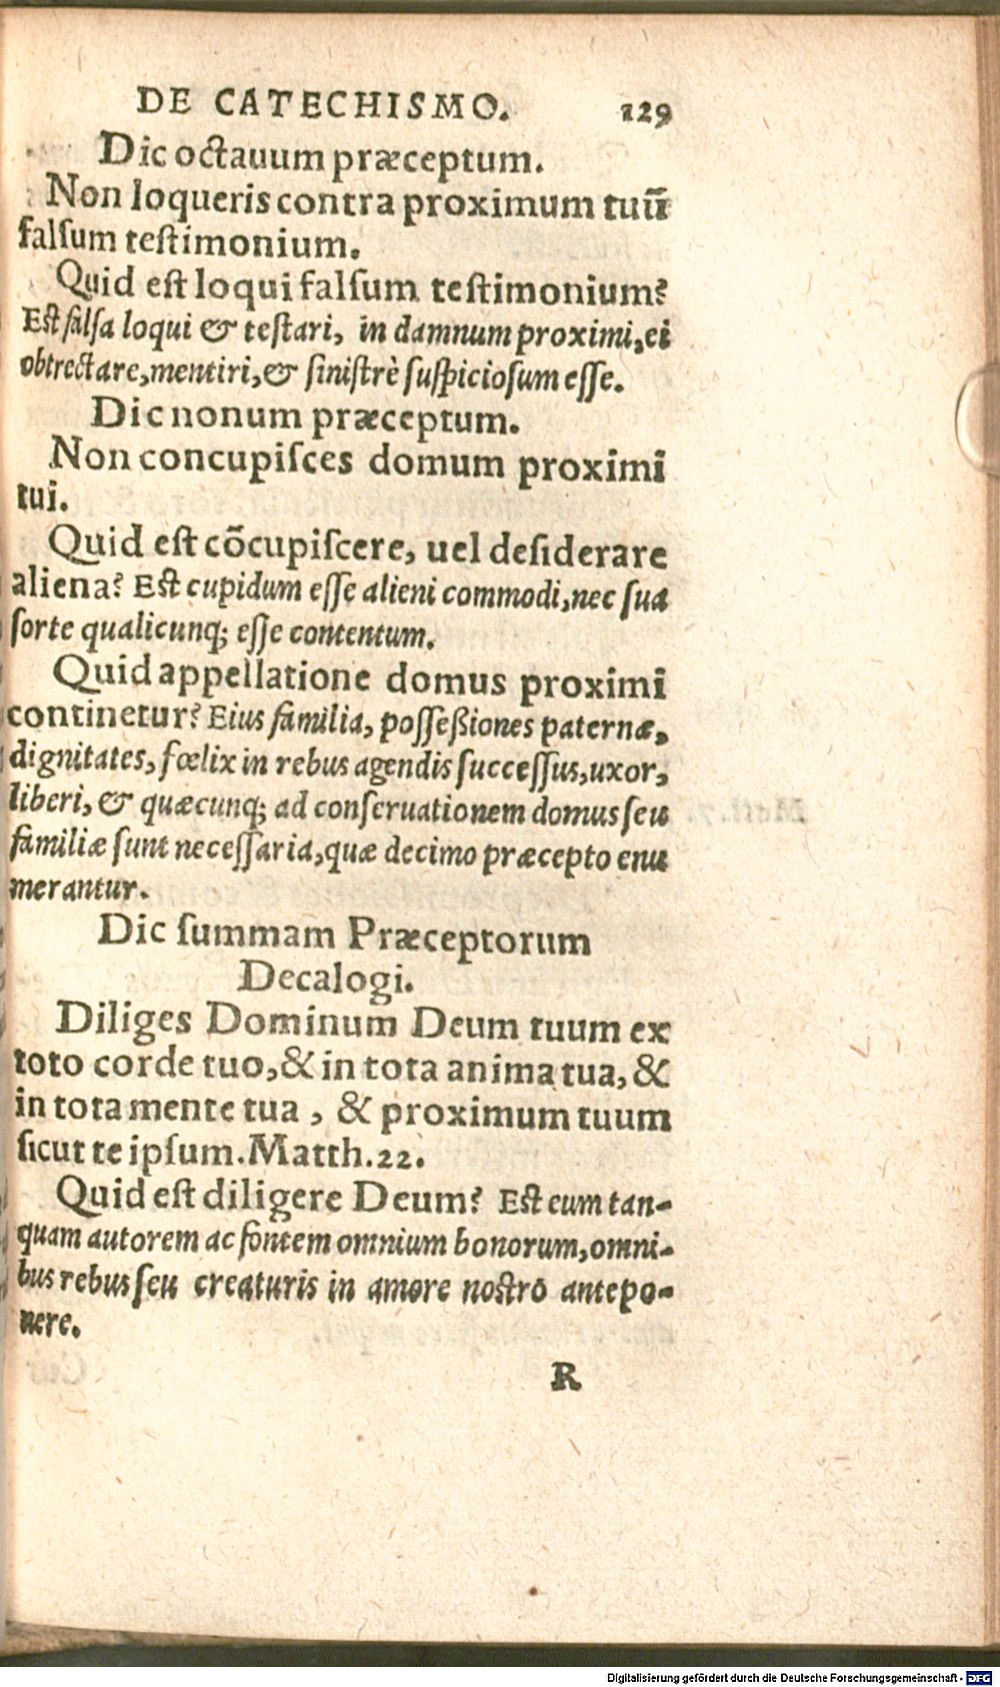 DE CATECHISMO. 129
Dic octauum præceptum.
Non loqueris contra proximum tuū
falſum teſtimonium.
Quid eſt loqui falſum teſtimonium?
Eſt falſa loqui & teſtari, in damnum proximi, ei
obtrectare, mentiri, & ſiniſtrè ſuſpicioſum eſſe.
Dic nonum præceptum.
Non concupiſces domum proximi
tui.
Quid eſt cōcupiſcere, uel deſiderare
aliena? Eſt cupidum eſſe alieni commodi, nec ſua
ſorte qualicunq; eſſe contentum.
Quid appellatione domus proximi
continetur? Eius familia, poſſeßiones paternæ,
dignitates, fœlix in rebus agendis ſucceſſus, uxor,
liberi, & quæcunq; ad conſeruationem domus ſeu
familiæ ſunt neceſſaria, quæ decimo præcepto enu
merantur.
Dic ſummam Præceptorum
Decalogi.
Diliges Dominum Deum tuum ex
toto corde tuo, & in tota anima tua, &
in tota mente tua, & proximum tuum
ſicut te ipſum. Matth. 22.
Quid eſt diligere Deum? Eſt eum tan-
quam autorem ac fontem omnium bonorum, omni-
bus rebus ſeu creaturis in amore noſtro antepo-
nere.
R
Digitalisierung gefördert durch die Deutsche Forschungsgemeinschaft - DFG